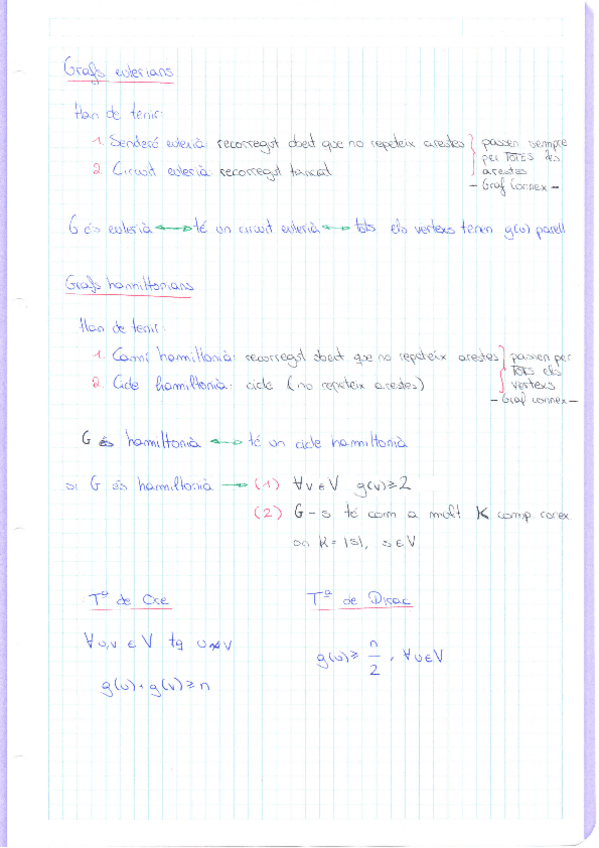 Grafs eulerians
Han de tenir:
1. Senderó eulerià: recorregut obert que no repeteix arestes } passen sempre
per TOTES les
2. Circuit eulerià: recorregut tancat
arestes
- Graf Connex -
G és eulerià ↔ té un circuit eulerià ↔ tots els vèrtexs tenen g(v) parell
Grafs hamiltonians
Han de tenir:
1. Camí hamiltonià: recorregut obert que no repeteix arestes } passen per
TOTS els
2. Cicle hamiltonià: cicle (no repeteix arestes)
vèrtexs
- Graf connex -
G és hamiltonià ↔ té un cicle hamiltonià
si G és hamiltonià → (1) ∀v∈V g(v)≥2
(2) G-s té com a molt K comp. conex
on K=|s|, s∈V
Tª de Ore
Tª de Dirac
∀u,v ∈ V tq u≁v
g(u)≥ n/2, ∀u∈V
g(u)+g(v)≥n